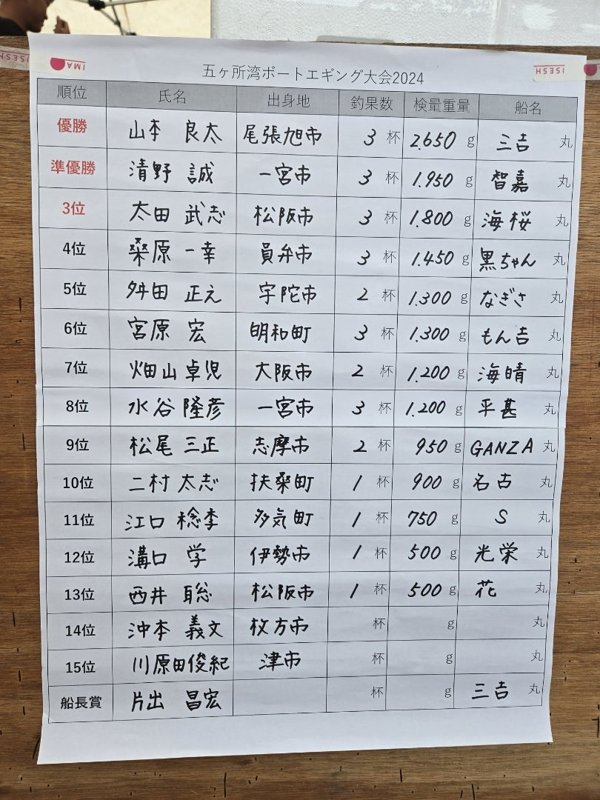 五ヶ所湾ボートエギング大会2024
順位 氏名 出身地 釣果数 検量重量 船名
優勝 山本 良太 尾張旭市 3 杯 2.650 g 三吉 丸
準優勝 清野 誠 一宮市 3 杯 1.950 g 智嘉 丸
3位 太田 武志 松阪市 3 杯 1.800 g 海桜 丸
4位 桑原 一幸 員弁市 3 杯 1.450 g 黒ちゃん 丸
5位 舛田 正之 宇陀市 2 杯 1.300 g なぎさ 丸
6位 宮原 宏 明和町 3 杯 1.300 g もん吉 丸
7位 畑山 卓児 大阪市 2 杯 1.200 g 海晴 丸
8位 水谷 隆彦 一宮市 3 杯 1.200 g 平甚 丸
9位 松尾 三正 志摩市 2 杯 950 g GANZA 丸
10位 二村 太志 扶桑町 1 杯 900 g 名古 丸
11位 江口 稔李 多気町 1 杯 750 g S 丸
12位 溝口 学 伊勢市 1 杯 500 g 光栄 丸
13位 西井 聡 松阪市 1 杯 500 g 花 丸
14位 沖本 義文 枚方市 杯 g 丸
15位 川原田俊紀 津市 杯 g 丸
船長賞 片出 昌宏 杯 g 三吉 丸